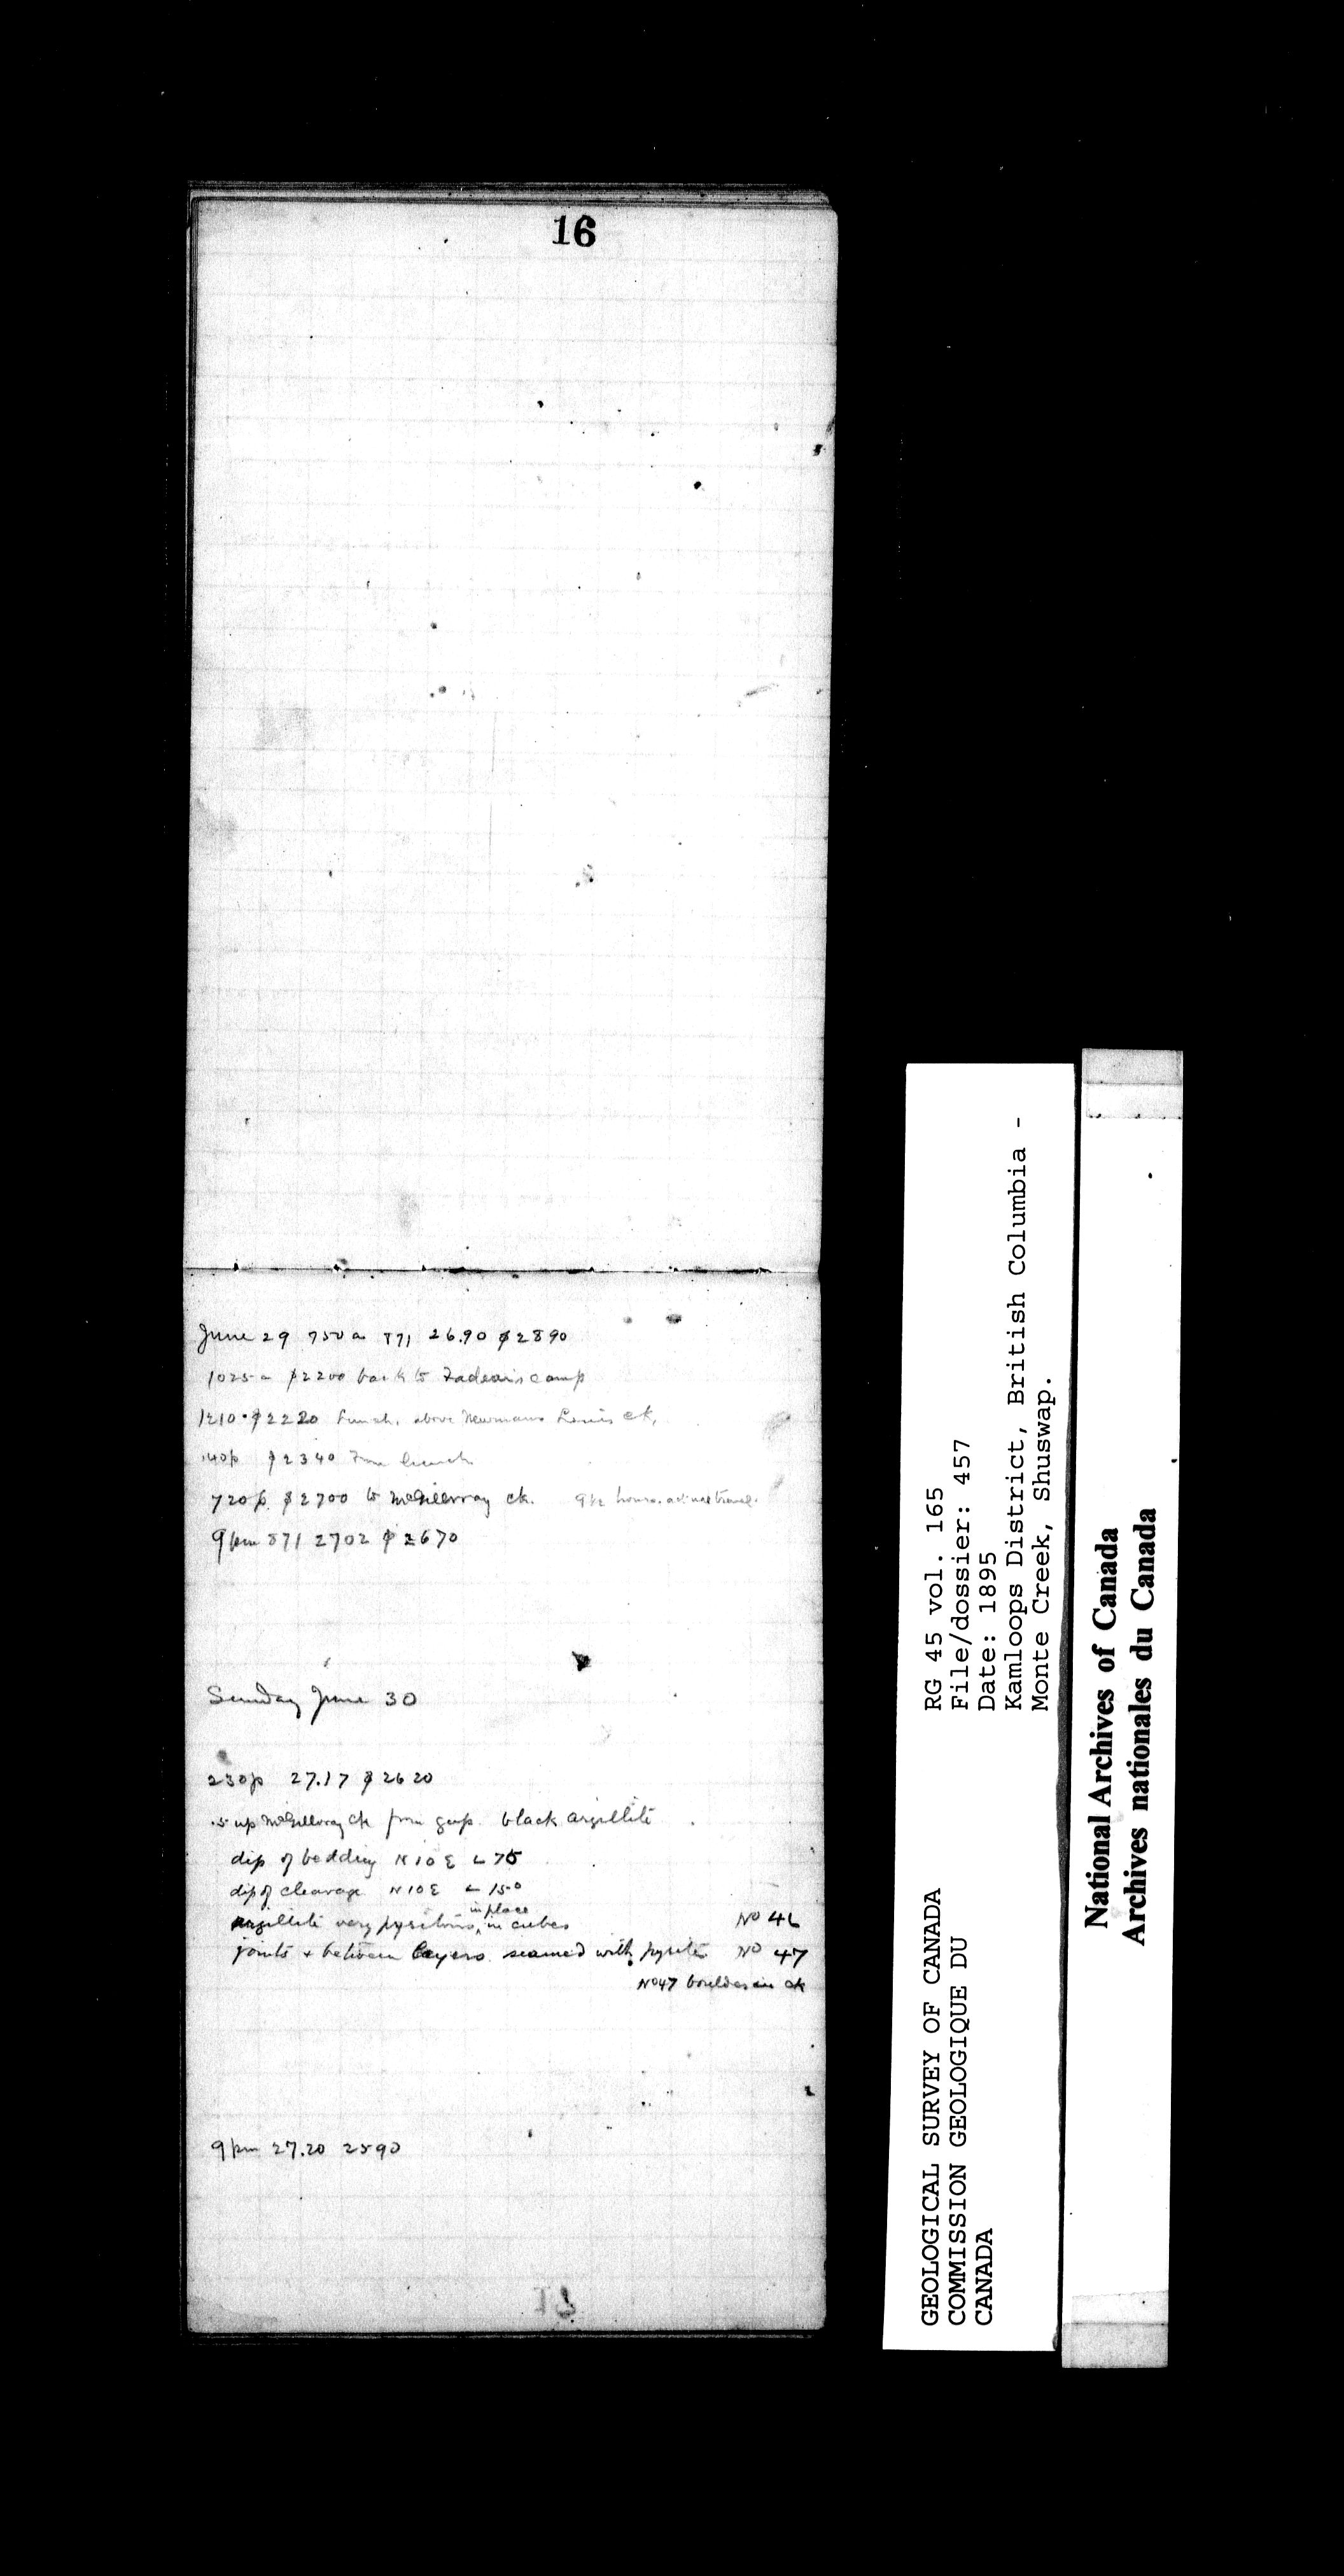 16
June 29 750 a 871 26.90 ϕ 2890
1025 a ϕ 2200 back to Fadear's camp
1210 · ϕ 2220 Lunch, above Newmans Louis ck,
.40p ϕ 2340 From lunch
720 p. ϕ 2700 to McGillvray ck. 9 1/2 hours. actual travel.
9 pm 871 2702 ϕ 2670
Sunday June 30
230p 27.17 ϕ 2620
.5 up McGillvray ck from gap. black argillite
dip of bedding N 10 E ∠ 75
dip of cleavage N 10 E ∠ 15°
argillite very pyritous, in place in cubes No 46
joints + between layers seamed with pyrite No 47
No 47 boulder in ck
9 pm 27.20 2590
GEOLOGICAL SURVEY OF CANADA
COMMISSION GEOLOGIQUE DU
CANADA
RG 45 vol. 165
File/dossier: 457
Date: 1895
Kamloops District, British Columbia -
Monte Creek, Shuswap.
National Archives of Canada
Archives nationales du Canada